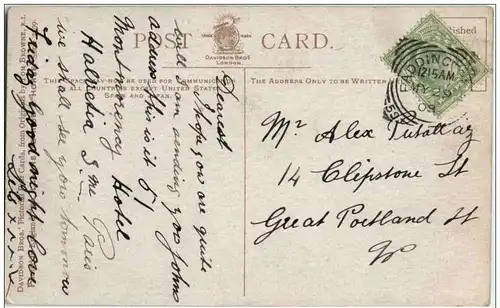 POST CARD.
TRADE MARK
DAVIDSON BROS.
LONDON.
THIS SPACE MAY NOT BE USED FOR COMMUNICATION
ALL COUNTRIES EXCEPT UNITED STATES
SPAIN AND JAPAN.
THE ADDRESS ONLY TO BE WRITTEN
Dearest
I hope you are quite
well I am sending you Johns
address this is it 61
Montmorency Hotel
Paris
we shall see you tomorrow
Friday Good night Love
x x x
DAVIDSON BROS.' Pictorial Post Cards, from Originals by TOM BROWNE, R.I.
PADDINGTON
1215AM
MY 29
08
Mr Alex
14 Clipstone St
Great Portland St
W